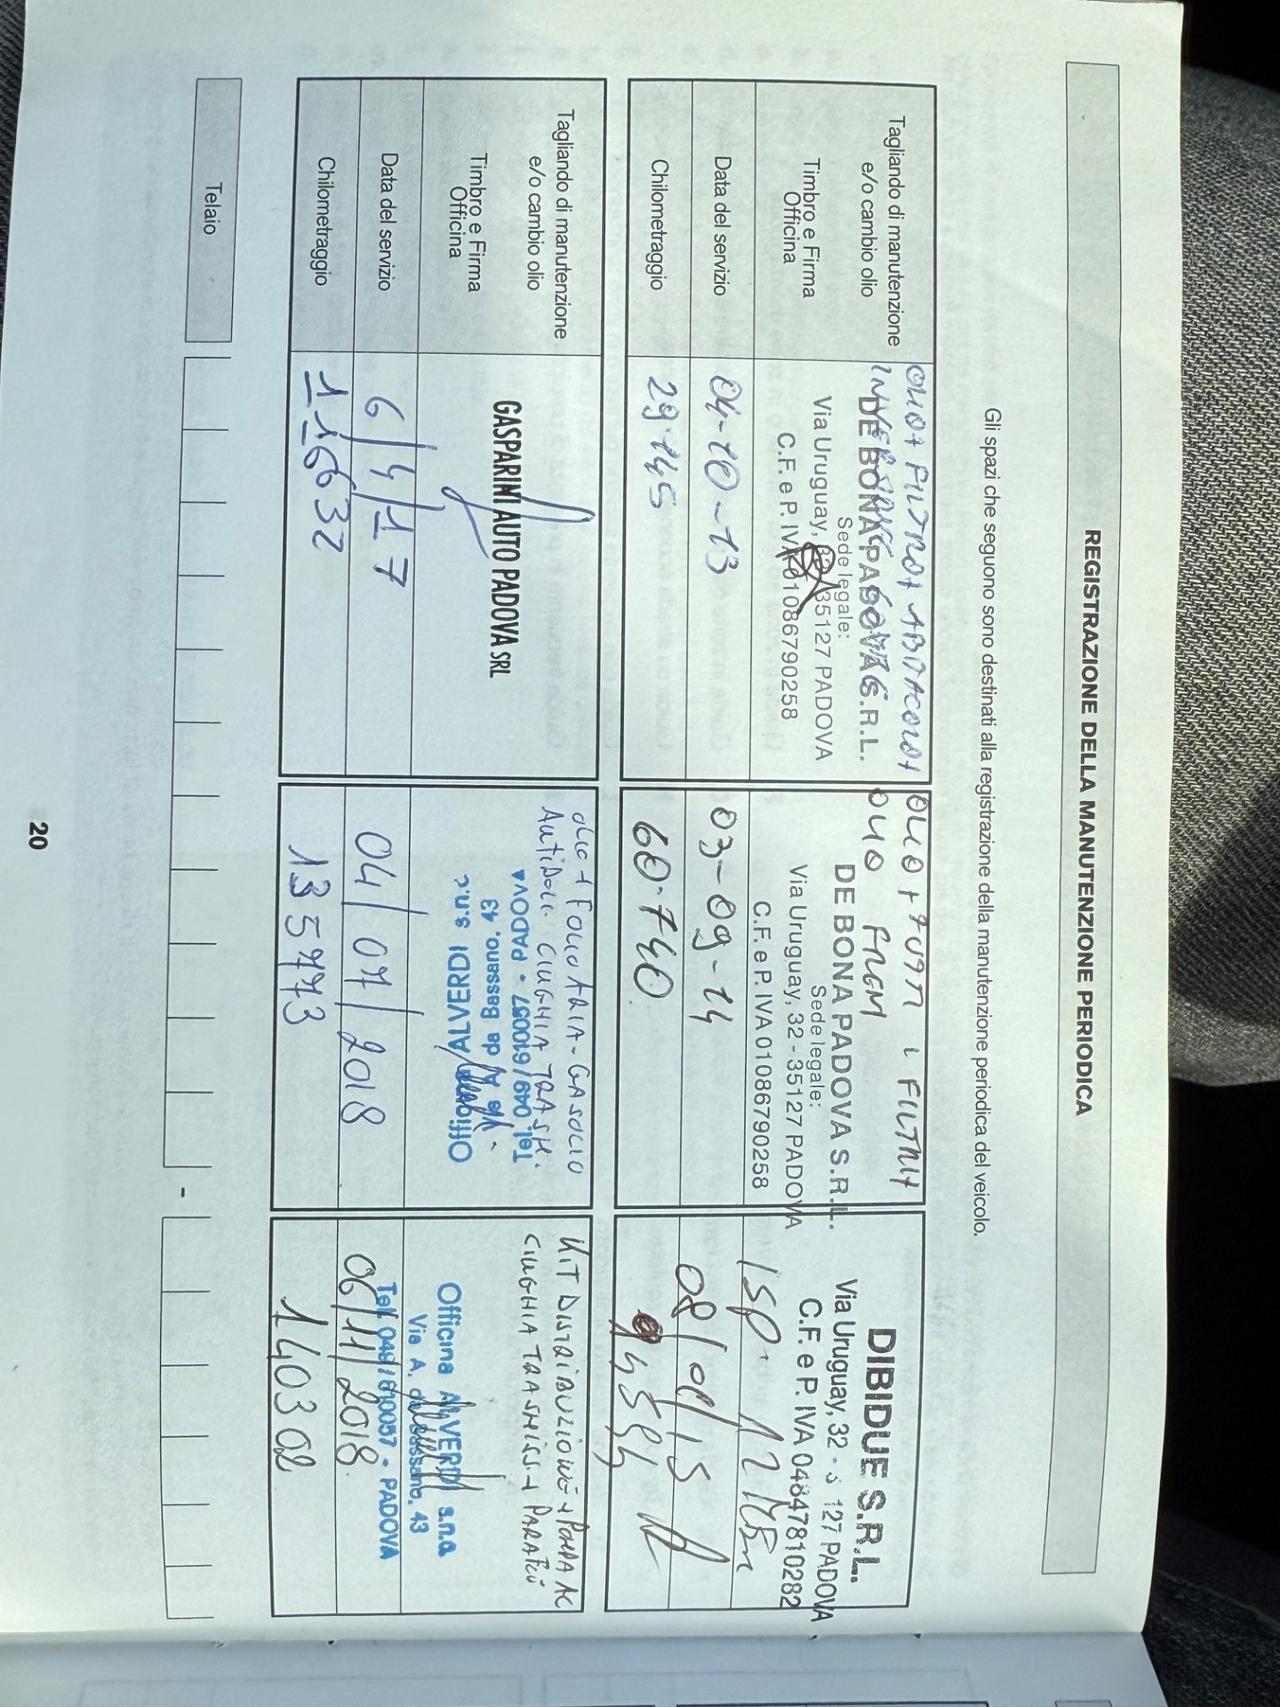 REGISTRAZIONE DELLA MANUTENZIONE PERIODICA
Gli spazi che seguono sono destinati alla registrazione della manutenzione periodica del veicolo.
Tagliando di manutenzione
e/o cambio olio
OLIO+ FILTRO+
DE BONA PADOVA S.R.L.
Timbro e Firma
Officina
Sede legale:
Via Uruguay, 35127 PADOVA
C.F. e P. IVA 01086790258
Data del servizio
04-10-13
Chilometraggio
29.145
OLIO + TUTTI I FILTRI+
OLIO FREN
DE BONA PADOVA S.R.L.
Sede legale:
Via Uruguay, 32 - 35127 PADOVA
C.F. e P. IVA 01086790258
03-09-14
60.740
DIBIDUE S.R.L.
Via Uruguay, 32 - 127 PADOVA
C.F. e P. IVA 04847810282
Tagliando di manutenzione
e/o cambio olio
Timbro e Firma
Officina
GASPARINI AUTO PADOVA SRL
Data del servizio
6/4/17
Chilometraggio
116632
OLIO + ARIA - GASOLIO
CINGHIA TRASM.
Officina ALVERDI s.n.c.
Via A. da Bassano, 43
Tel. 049/610057 - PADOVA
04/07/2018
135973
KIT DISTRIBUZIONE + POMPA AC
CINGHIA TRASMISS. +
Officina ALVERDI s.n.c.
Via A. da Bassano, 43
Tel. 049/610057 - PADOVA
06/11/2018
140302
Telaio
-
20